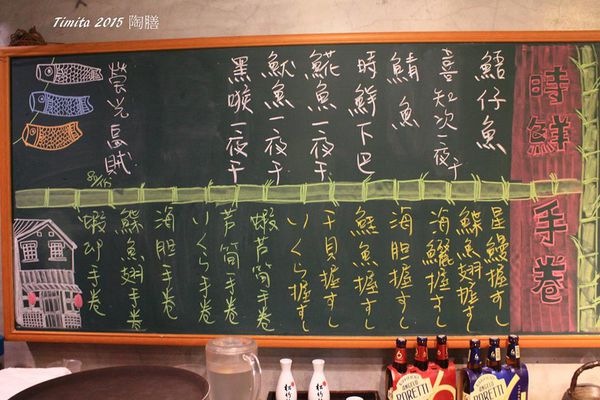 Timita 2015 陶膳
時鮮
手卷
喜知次一夜干
鯖魚
時鮮下巴
𩸽魚一夜干
魷魚一夜干
黑喉一夜干
螢光烏賊
星鰻握すし
鰈魚翅握すし
海鱺握すし
海胆握すし
鮭魚握すし
干貝握すし
いくら握すし
蝦芦筍手卷
芦筍手卷
いくら手卷
海胆手卷
鰈魚翅手卷
蝦卵手卷
松竹梅
ANGELO
PORETTI
ANGELO
PORETTI